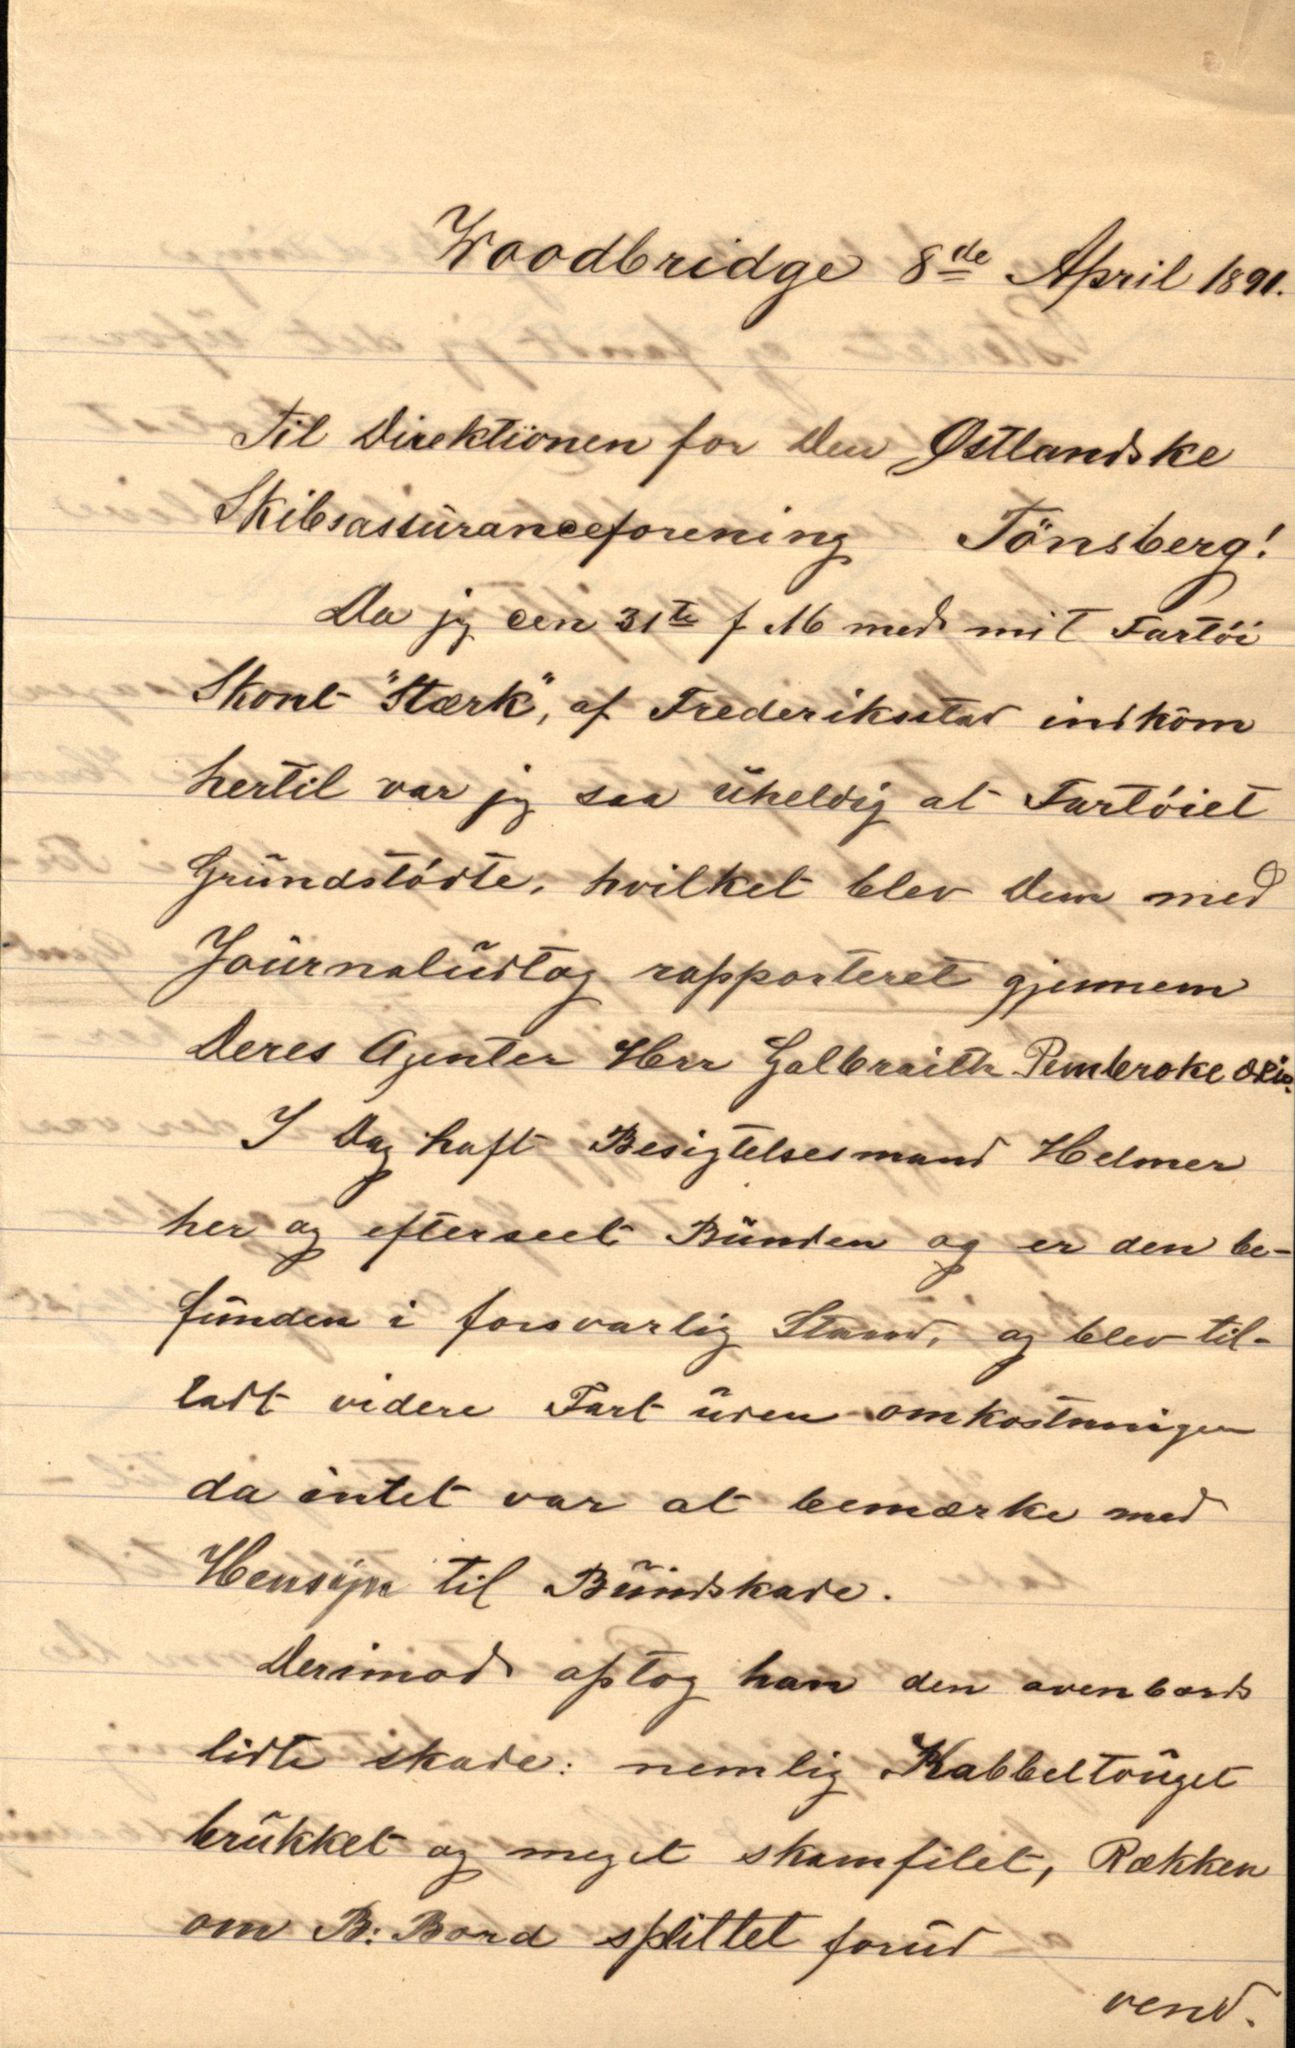 Woodbridge 8de April 1891.
Til Direktionen for Den Østlandske
Skibsassuranceforening Tönsberg!
Da jg den 31te f M med mit Fartöi
Skont "Stærk", af Frederiksstad indkom
hertil var jg saa uheldig at Fartöiet
Grundstödte, hvilket blev Dem med
Journaludtog rapporteret gjennem
Deres Agenter Herr Galbraith Pembroke & Co.
I Dag haft Besigtelsesmand Helmer
her og efterseet Bunden og er den be-
funden i forsvarlig Stand, og blev til-
ladt videre Fart uden omkostninger
da intet var at bemærke med
Hensyn til Bundskade.
Derimod optog han den ovenbords
lidte skade: nemlig Kabbeltouget
brukket og meget skamfilet, Rækken
om B: Bord splittet forud
vend.